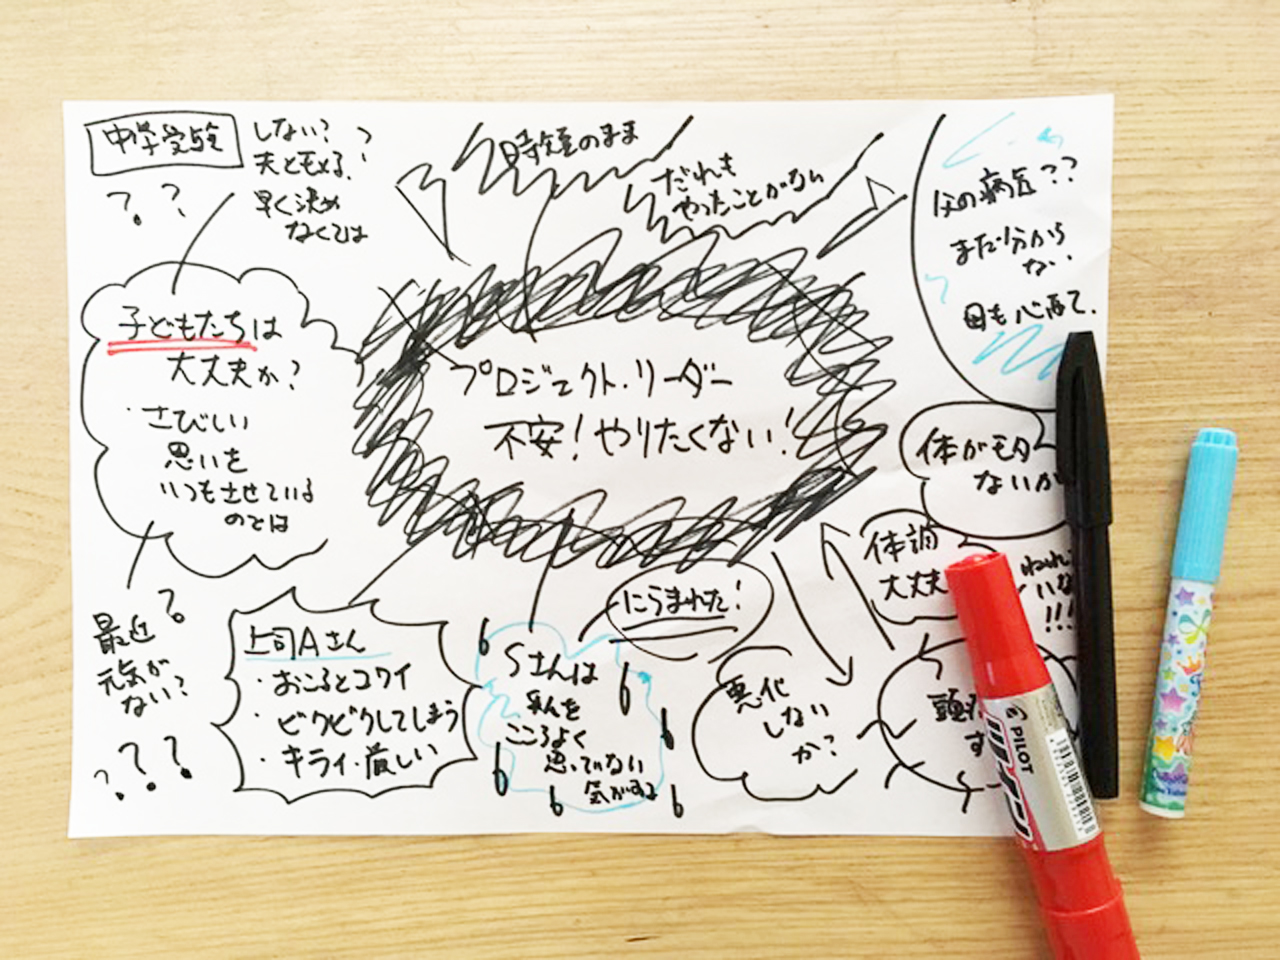 中学受験
しない?
夫ともめる、?
早く決め
なくては
? ?
時短のまま
だれも
やったことがない
父の病気??
まだ分から
ない
母も心配で、
子どもたちは
大丈夫か?
・さびしい
思いを
いつもさせている
のでは
プロジェクト・リーダー
不安!やりたくない!
体がモタ
ないか
体調
大丈夫
!!!
にらまれた!
最近
元気が
ない?
?
???
上司Aさん
・おこるとコワイ
・ビクビクしてしまう
・キライ・厳しい
Sさんは
私を
こころよく
思っていない
気がする
悪化
しない
か?
頭
す
PILOT